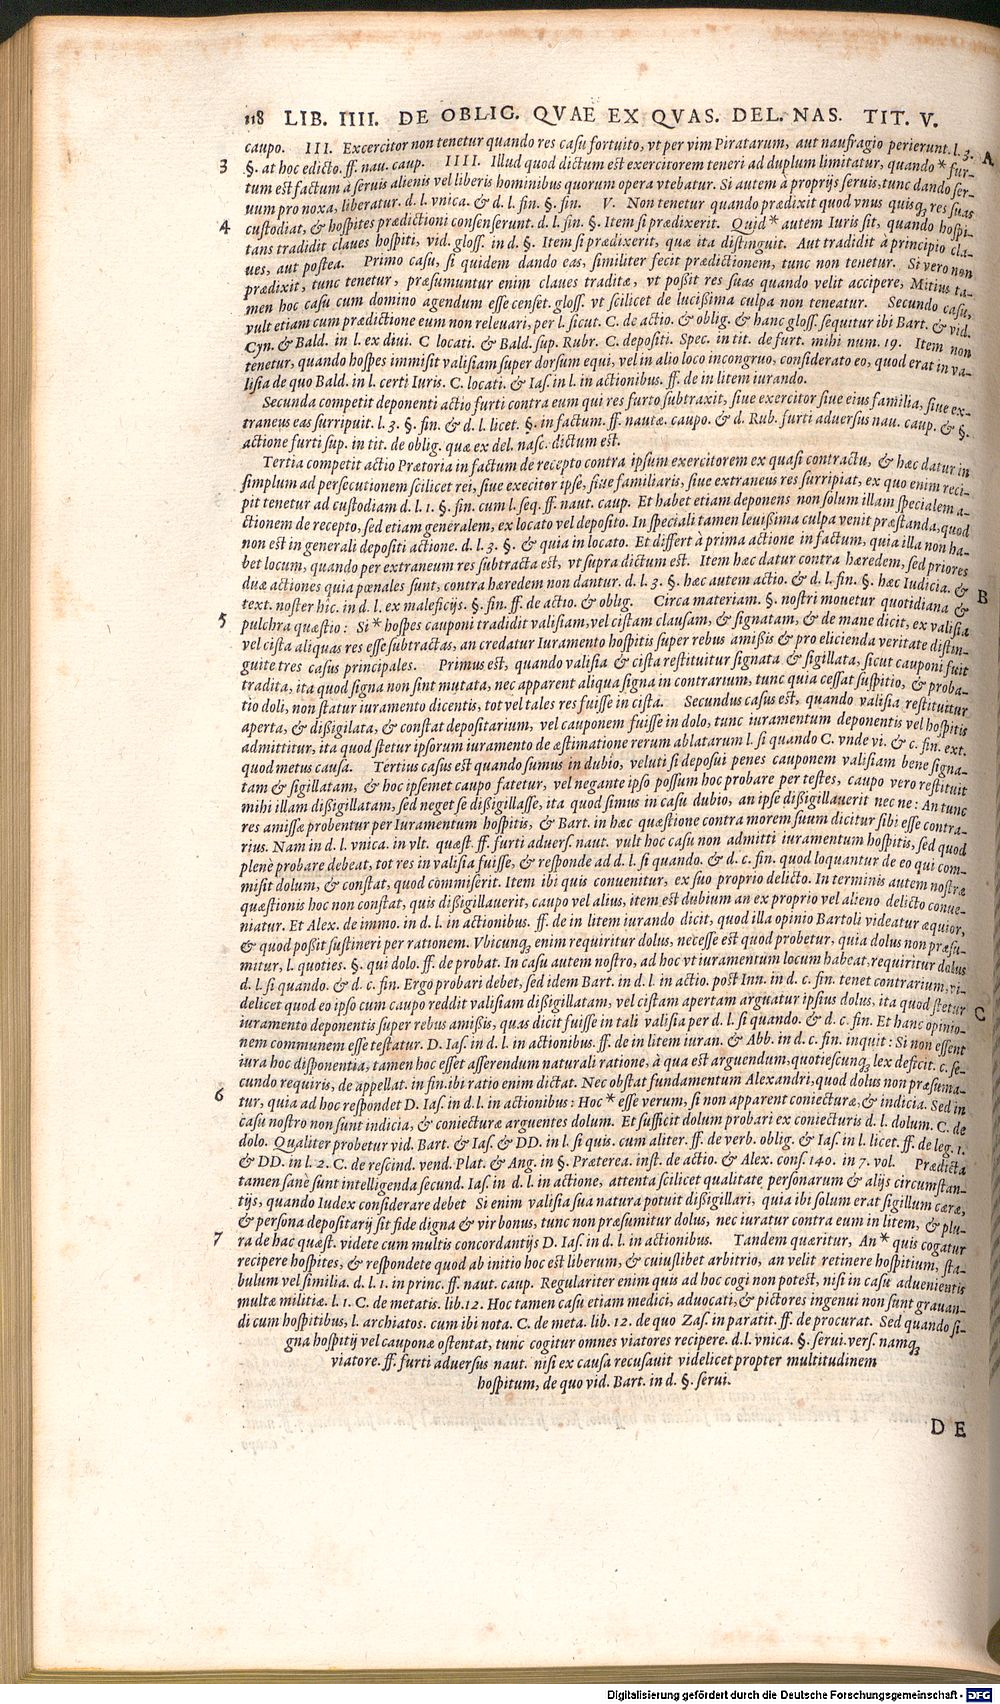 118 LIB. IIII. DE OBLIG. QVAE EX QVAS. DEL. NAS. TIT. V.
caupo. III. Excercitor non tenetur quando res casu fortuito, vt per vim Piratarum, aut naufragio perierunt. l. 3. A
3 §. at hoc edicto. ff. nau. caup. IIII. Illud quod dictum est exercitorem teneri ad duplum limitatur, quando * fur-
tum est factum à seruis alienis vel liberis hominibus quorum opera vtebatur. Si autem à proprijs seruis, tunc dando ser-
uum pro noxa, liberatur. d. l. vnica. & d. l. fin. §. fin. V. Non tenetur quando prædixit quod vnus quisq; res suas
4 custodiat, & hospites prædictioni consenserunt. d. l. fin. §. Item si prædixerit. Quid * autem Iuris sit, quando hospi-
tans tradidit claues hospiti, vid. gloss. in d. §. Item si prædixerit, quæ ita distinguit. Aut tradidit à principio cla-
ues, aut postea. Primo casu, si quidem dando eas, similiter fecit prædictionem, tunc non tenetur. Si vero non
prædixit, tunc tenetur, præsumuntur enim claues traditæ, vt possit res suas quando velit accipere, Mitius ta-
men hoc casu cum domino agendum esse censet. gloss. vt scilicet de lucissima culpa non teneatur. Secundo casu,
vult etiam cum prædictione eum non releuari, per l. sicut. C. de actio. & oblig. & hanc gloss. sequitur ibi Bart. & vid.
Cyn. & Bald. in l. ex diui. C locati. & Bald. sup. Rubr. C. depositi. Spec. in tit. de furt. mihi num. 19. Item non
tenetur, quando hospes immisit valisiam super dorsum equi, vel in alio loco incongruo, considerato eo, quod erat in va-
lisia de quo Bald. in l. certi Iuris. C. locati. & Ias. in l. in actionibus. ff. de in litem iurando.
Secunda competit deponenti actio furti contra eum qui res furto subtraxit, siue exercitor siue eius familia, siue ex-
traneus eas surripuit. l. 3. §. fin. & d. l. licet. §. in factum. ff. nautæ. caupo. & d. Rub. furti aduersus nau. caup. & §.
actione furti sup. in tit. de oblig. quæ ex del. nasc. dictum est.
Tertia competit actio Prætoria in factum de recepto contra ipsum exercitorem ex quasi contractu, & hæc datur in
simplum ad persecutionem scilicet rei, siue execitor ipse, siue familiaris, siue extraneus res surripiat, ex quo enim reci-
pit tenetur ad custodiam d. l. 1. §. fin. cum l. seq. ff. naut. caup. Et habet etiam deponens non solum illam specialem a-
ctionem de recepto, sed etiam generalem, ex locato vel deposito. In speciali tamen leuissima culpa venit præstanda, quod
non est in generali depositi actione. d. l. 3. §. & quia in locato. Et differt à prima actione in factum, quia illa non ha-
bet locum, quando per extraneum res subtracta est, vt supra dictum est. Item hæc datur contra hæredem, sed priores
duæ actiones quia pœnales sunt, contra hæredem non dantur. d. l. 3. §. hæc autem actio. & d. l. fin. §. hæc Iudicia. & B
text. noster hîc. in d. l. ex maleficijs. §. fin. ff. de actio. & oblig. Circa materiam. §. nostri mouetur quotidiana &
5 pulchra quæstio: Si * hospes cauponi tradidit valisiam, vel cistam clausam, & signatam, & de mane dicit, ex valisia
vel cista aliquas res esse subtractas, an credatur Iuramento hospitis super rebus amissis & pro elicienda veritate distin-
guite tres casus principales. Primus est, quando valisia & cista restituitur signata & sigillata, sicut cauponi fuit
tradita, ita quod signa non sint mutata, nec apparent aliqua signa in contrarium, tunc quia cessat suspitio, & proba-
tio doli, non statur iuramento dicentis, tot vel tales res fuisse in cista. Secundus casus est, quando valisia restituitur
aperta, & dissigilata, & constat depositarium, vel cauponem fuisse in dolo, tunc iuramentum deponentis vel hospitis
admittitur, ita quod stetur ipsorum iuramento de æstimatione rerum ablatarum l. si quando C. vnde vi. & c. fin. ext.
quod metus causa. Tertius casus est quando sumus in dubio, veluti si deposui penes cauponem valisiam bene signa-
tam & sigillatam, & hoc ipsemet caupo fatetur, vel negante ipso possum hoc probare per testes, caupo vero restituit
mihi illam dissigillatam, sed neget se dissigillasse, ita quod simus in casu dubio, an ipse dissigillauerit nec ne: An tunc
res amissæ probentur per Iuramentum hospitis, & Bart. in hæc quæstione contra morem suum dicitur sibi esse contra-
rius. Nam in d. l. vnica. in vlt. quæst. ff. furti aduers. naut. vult hoc casu non admitti iuramentum hospitis, sed quod
plenè probare debeat, tot res in valisia fuisse, & responde ad d. l. si quando. & d. c. fin. quod loquantur de eo qui com-
misit dolum, & constat, quod commiserit. Item ibi quis conuenitur, ex suo proprio delicto. In terminis autem nostræ
quæstionis hoc non constat, quis dissigillauerit, caupo vel alius, item est dubium an ex proprio vel alieno delicto conue-
niatur. Et Alex. de immo. in d. l. in actionibus. ff. de in litem iurando dicit, quod illa opinio Bartoli videatur æquior,
& quod possit sustineri per rationem. Vbicunq; enim requiritur dolus, necesse est quod probetur, quia dolus non præsu-
mitur, l. quoties. §. qui dolo. ff. de probat. In casu autem nostro, ad hoc vt iuramentum locum habeat, requiritur dolus
d. l. si quando. & d. c. fin. Ergo probari debet, sed idem Bart. in d. l. in actio. post Inn. in d. c. fin. tenet contrarium, vi-
delicet quod eo ipso cum caupo reddit valisiam dissigillatam, vel cistam apertam arguatur ipsius dolus, ita quod stetur C
iuramento deponentis super rebus amissis, quas dicit fuisse in tali valisia per d. l. si quando. & d. c. fin. Et hanc opinio-
nem communem esse testatur. D. Ias. in d. l. in actionibus. ff. de in litem iuran. & Abb. in d. c. fin. inquit: Si non essent
iura hoc disponentia, tamen hoc esset asserendum naturali ratione, à qua est arguendum, quotiescunq; lex deficit. c. se-
cundo requiris, de appellat. in fin. ibi ratio enim dictat. Nec obstat fundamentum Alexandri, quod dolus non præsuma-
6 tur, quia ad hoc respondet D. Ias. in d. l. in actionibus: Hoc * esse verum, si non apparent coniecturæ, & indicia. Sed in
casu nostro non sunt indicia, & coniecturæ arguentes dolum. Et sufficit dolum probari ex coniecturis d. l. dolum. C. de
dolo. Qualiter probetur vid. Bart. & Ias. & DD. in l. si quis. cum aliter. ff. de verb. oblig. & Ias. in l. licet. ff. de leg. 1.
& DD. in l. 2. C. de rescind. vend. Plat. & Ang. in §. Præterea. inst. de actio. & Alex. cons. 140. in 7. vol. Prædicta
tamen sanè sunt intelligenda secund. Ias. in d. l. in actione, attenta scilicet qualitate personarum & alijs circumstan-
tijs, quando Iudex considerare debet Si enim valisia sua natura potuit dissigillari, quia ibi solum erat sigillum cæræ,
& persona depositarij sit fide digna & vir bonus, tunc non præsumitur dolus, nec iuratur contra eum in litem, & plu-
7 ra de hac quæst. videte cum multis concordantijs D. Ias. in d. l. in actionibus. Tandem quæritur, An * quis cogatur
recipere hospites, & respondete quod ab initio hoc est liberum, & cuiuslibet arbitrio, an velit retinere hospitium, sta-
bulum vel similia. d. l. 1. in princ. ff. naut. caup. Regulariter enim quis ad hoc cogi non potest, nisi in casu aduenientis
multæ militiæ. l. 1. C. de metatis. lib. 12. Hoc tamen casu etiam medici, aduocati, & pictores ingenui non sunt grauan-
di cum hospitibus, l. archiatos. cum ibi nota. C. de meta. lib. 12. de quo Zas. in paratit. ff. de procurat. Sed quando si-
gna hospitij vel cauponæ ostentat, tunc cogitur omnes viatores recipere. d. l. vnica. §. serui. vers. namq;
viatore. ff. furti aduersus naut. nisi ex causa recusauit videlicet propter multitudinem
hospitum, de quo vid. Bart. in d. §. serui.
DE
Digitalisierung gefördert durch die Deutsche Forschungsgemeinschaft - DFG